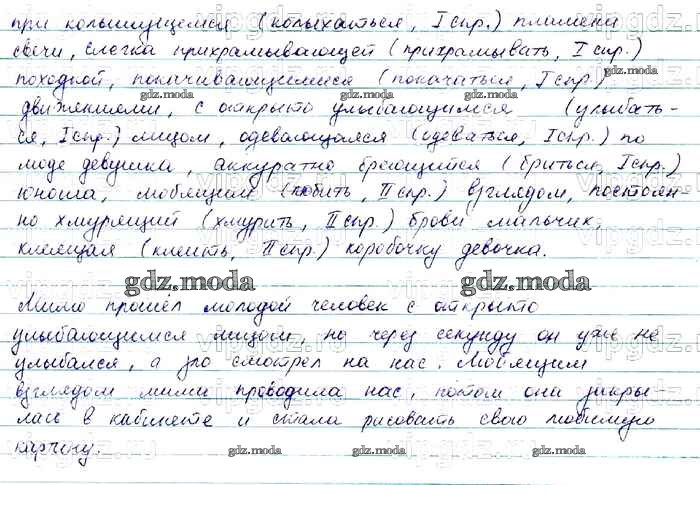 при колышущемся (колыхаться, I спр.) пламени
свечи, слегка прихрамывающей (прихрамывать, I спр.)
походкой, покачивающимися (покачаться, I спр.)
движениями, с открыто улыбающимся (улыбать-
ся, I спр.) лицом, одевающаяся (одеваться, I спр.) по
моде девушка, аккуратно бреющийся (бриться, I спр.)
юноша, любящим (любить, II спр.) взглядом, постоян-
но хмурящий (хмурить, II спр.) брови мальчик,
клеящая (клеить, II спр.) коробочку девочка.
gdz.moda gdz.moda gdz.moda
Мимо прошёл молодой человек с открыто
улыбающимся лицом, но через секунду он уже не
улыбался, а зло смотрел на нас. Любящим
взглядом проводила нас, потом она закры
лась в кабинете и стала рисовать свою любимую
картину.